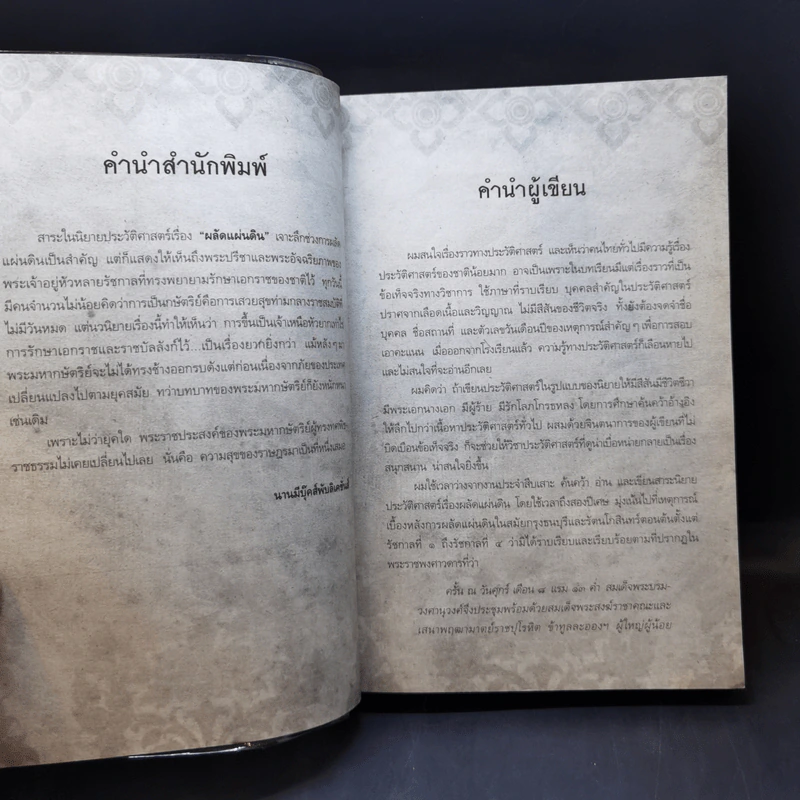 คำนำสำนักพิมพ์
สาระในนิยายประวัติศาสตร์เรื่อง "ผลัดแผ่นดิน" เจาะลึกช่วงการผลัด
แผ่นดินเป็นสำคัญ แต่ก็แสดงให้เห็นถึงพระปรีชาและพระอัจฉริยภาพของ
พระเจ้าอยู่หัวหลายรัชกาลที่ทรงพยายามรักษาเอกราชของชาติไว้ ทุกวันนี้
มีคนจำนวนไม่น้อยคิดว่าการเป็นกษัตริย์คือการเสวยสุขท่ามกลางราชสมบัติที่
ไม่มีวันหมด แต่นวนิยายเรื่องนี้ทำให้เห็นว่า การขึ้นเป็นเจ้าเหนือหัวยากเท่าไร
การรักษาเอกราชและราชบัลลังก์ไว้ เป็นเรื่องยากยิ่งกว่า แม้หลังๆ มา
พระมหากษัตริย์จะไม่ได้ทรงช้างออกรบดังแต่ก่อนเนื่องจากภัยของประเทศ
เปลี่ยนแปลงไปตามยุคสมัย ทว่าบทบาทของพระมหากษัตริย์ก็ยังหนักหนา
เช่นเดิม
เพราะไม่ว่ายุคใด พระราชประสงค์ของพระมหากษัตริย์ผู้ทรงทศพิธ
ราชธรรมไม่เคยเปลี่ยนไปเลย นั่นคือ ความสุขของราษฎรมาเป็นที่หนึ่งเสมอ
นานมีบุ๊คส์พับลิเคชั่นส์
คำนำผู้เขียน
ผมสนใจเรื่องราวทางประวัติศาสตร์ และเห็นว่าคนไทยทั่วไปมีความรู้เรื่อง
ประวัติศาสตร์ของชาติน้อยมาก อาจเป็นเพราะในบทเรียนมีแต่เรื่องราวที่เป็น
ข้อเท็จจริงทางวิชาการ ใช้ภาษาที่ราบเรียบ บุคคลสำคัญในประวัติศาสตร์
ปราศจากเลือดเนื้อและวิญญาณ ไม่มีสีสันของชีวิตจริง ทั้งยังต้องจดจำชื่อ
บุคคล ชื่อสถานที่ และตัวเลขวันเดือนปีของเหตุการณ์สำคัญๆ เพื่อการสอบ
เอาคะแนน เมื่อออกจากโรงเรียนแล้ว ความรู้ทางประวัติศาสตร์ก็เลือนหายไป
และไม่สนใจที่จะอ่านอีกเลย
ผมคิดว่า ถ้าเขียนประวัติศาสตร์ในรูปแบบของนิยายให้มีสีสันมีชีวิตชีวา
มีพระเอกนางเอก มีผู้ร้าย มีรักโลภโกรธหลง โดยการศึกษาค้นคว้าอ้างอิง
ให้ลึกไปกว่าเนื้อหาประวัติศาสตร์ทั่วไป ผสมด้วยจินตนาการของผู้เขียนที่ไม่
บิดเบือนข้อเท็จจริง ก็จะช่วยให้วิชาประวัติศาสตร์ที่ดูน่าเบื่อหน่ายกลายเป็นเรื่อง
สนุกสนาน น่าสนใจยิ่งขึ้น
ผมใช้เวลาว่างจากงานประจำสืบเสาะ ค้นคว้า อ่าน และเขียนสาระนิยาย
ประวัติศาสตร์เรื่องผลัดแผ่นดิน โดยใช้เวลาถึงสองปีเศษ มุ่งเน้นไปที่เหตุการณ์
เบื้องหลังการผลัดแผ่นดินในสมัยกรุงธนบุรีและรัตนโกสินทร์ตอนต้นตั้งแต่
รัชกาลที่ ๑ ถึงรัชกาลที่ ๔ ว่ามิได้ราบเรียบและเรียบร้อยตามที่ปรากฏใน
พระราชพงศาวดารที่ว่า
ครั้น ณ วันศุกร์ เดือน ๘ แรม ๑๓ ค่ำ สมเด็จพระบรม-
วงศานุวงศ์จึงประชุมพร้อมด้วยสมเด็จพระสงฆ์ราชาคณะและ
เสนาพฤฒามาตย์ราชปุโรหิต ข้าทูลละอองฯ ผู้ใหญ่ผู้น้อย